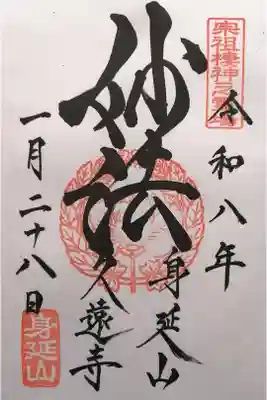 宗祖棲神之霊山
令和八年
身延山
妙法
久遠寺
一月二十八日
身延山